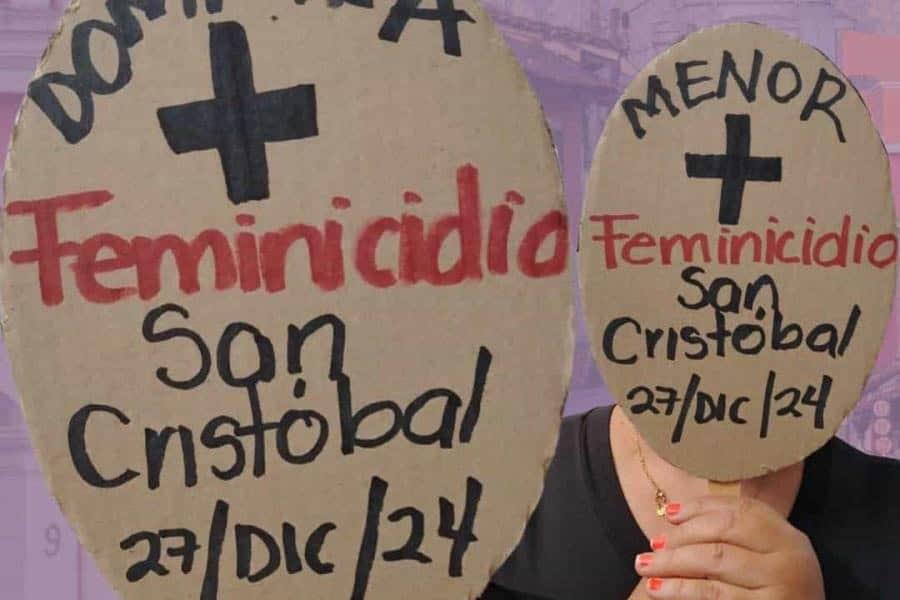 Feminicidio
San
Cristóbal
27/DIC/24
MENOR
Feminicidio
San
Cristóbal
27/DIC/24
9